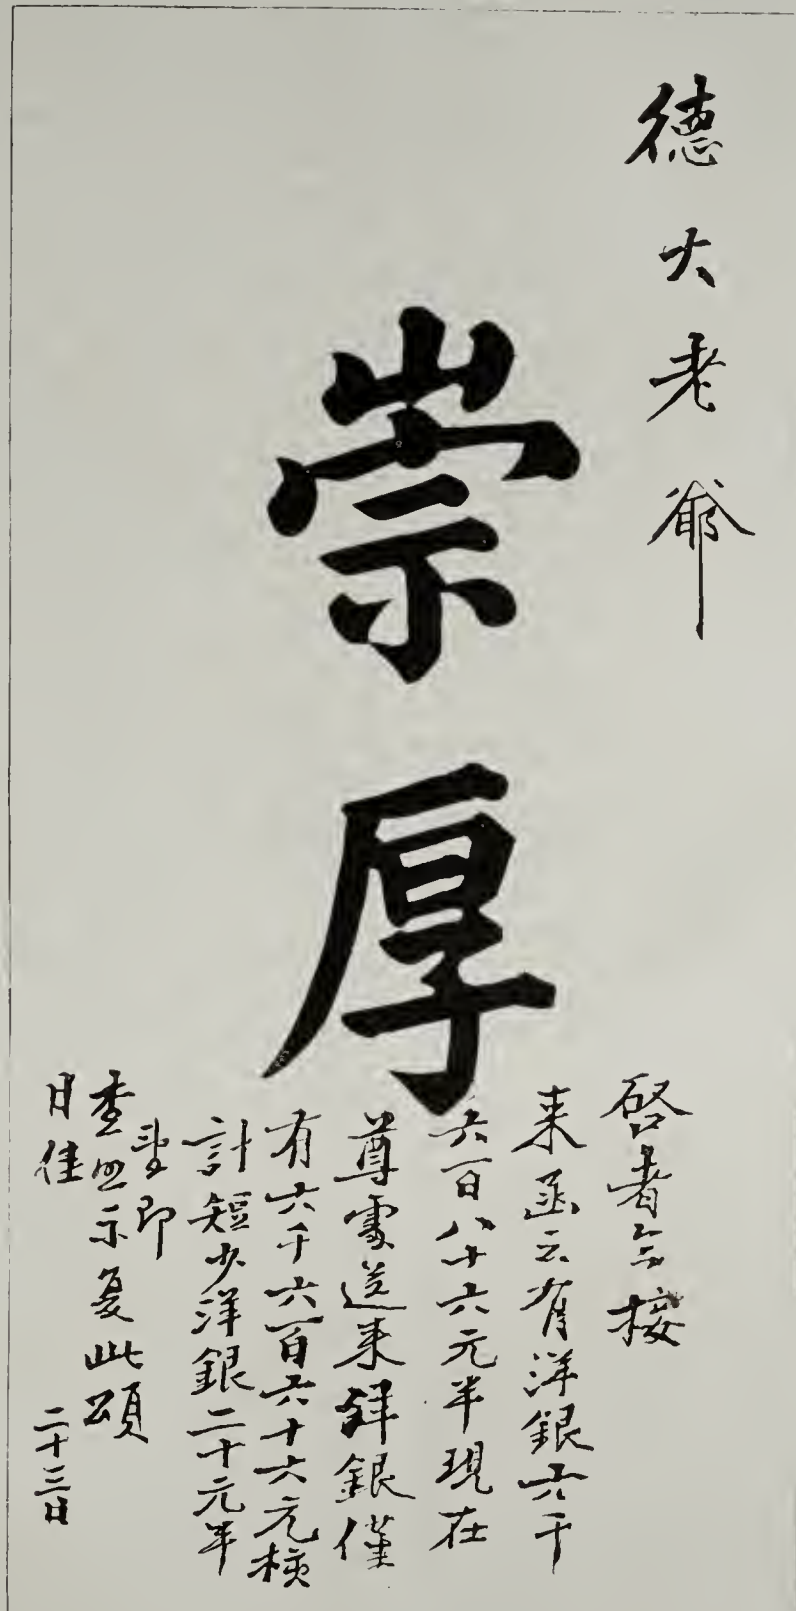 德大老爺
崇厚
啓者今接
来函云有洋銀六千
六百八十六元半現在
尊處送来洋銀僅
有六千六百六十六元核
計短少洋銀二十元半
即
查照示复此頌
日佳
二十三日